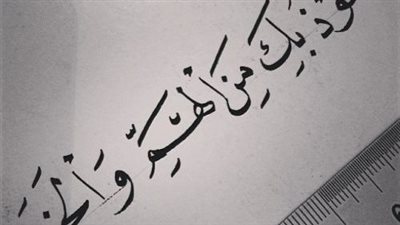 ـوذ بِكَ مِنَ الْهَمِّ وَالْحَـ